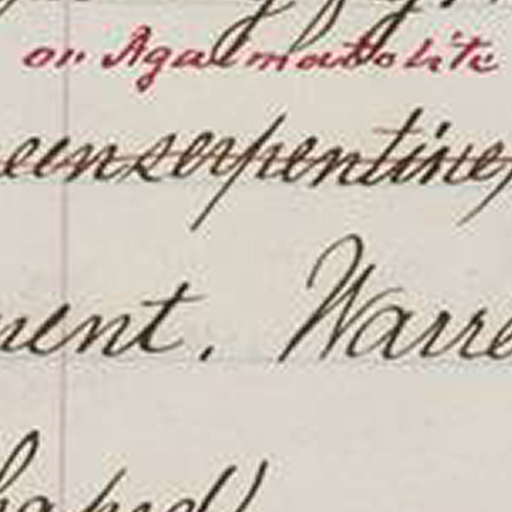 or Agalmatolite
eenserpentine,
ment. Warre
haped)